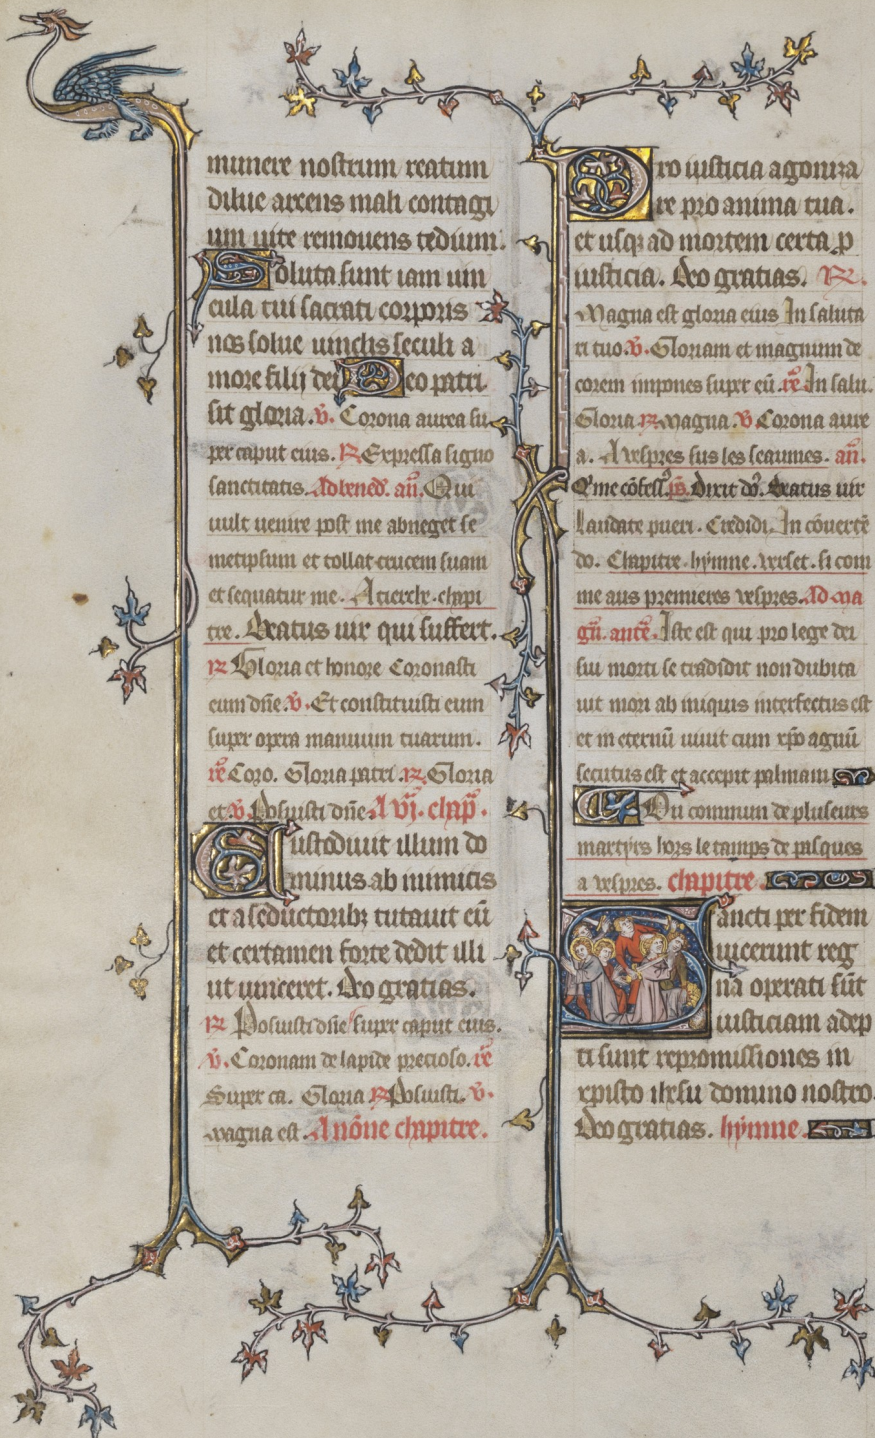 munere nostrum reatum
dilue arcens mali contagi
um uite remouens tedium.
Soluta sunt iam uin
cula tui sacrati corporis
nos solue uinclis seculi a
more filij dei Deo patri
sit gloria. v̄. Corona aurea su
per caput eius. R Expressa signo
sanctitatis. Ad bened̄. an̄. Qui
uult uenire post me abneget se
metipsum et tollat crucem suam
et sequatur me. A tierche. chapi
tre. Beatus uir qui suffert.
R Gloria et honore Coronasti
eum dn̄e. v̄. Et constituisti eum
super opera manuum tuarum.
re᷑ Coro. Gloria patri. R Gloria
et. v̄. Posuisti dn̄e. A vj. chap̄.
Custodiuit illum do
minus ab inimicis
et a seductoribꝫ tutauit eū
et certamen forte dedit illi
ut uinceret. Deo gratias.
R Posuisti dn̄e super caput eius.
v̄. Coronam de lapide precioso. re᷑
Super ca. Gloria R Posuisti. v̄.
Magna est. A nōne chapitre.
Pro iusticia agoniza
re pro anima tua.
et usqꝫ ad mortem certa ꝓ
iusticia. Deo gratias. R.
Magna est gloria eius In saluta
ri tuo. v̄. Gloriam et magnum de
corem impones super eū. re᷑ In salu.
Gloria R Magna. v̄ Corona aure
a. A vespres sus les seaumes. an̄.
Q̄ me cōfess᷑. p̄s. Dixit dn̄s. Beatus uir
Laudate pueri. Credidi. In cōuertē
do. Chapitre. hymne. verset. si com
me aus premieres vespres. Ad ma
gn̄. ante᷑. Iste est qui pro lege dei
sui morti se tradidit non dubita
uit mori ab iniquis interfectus est
et in eternū uiuit cum xp̄o agnū
secutus est et accepit palmam
Du commun de pluseurs
martyrs hors le tamps de pasques
a vespres. chapitre
Sancti per fidem
uicerunt reg
na operati sūt
iusticiam adep
ti sunt repromissiones in
xpisto ihesu domino nostro.
Deo gratias. hymne.